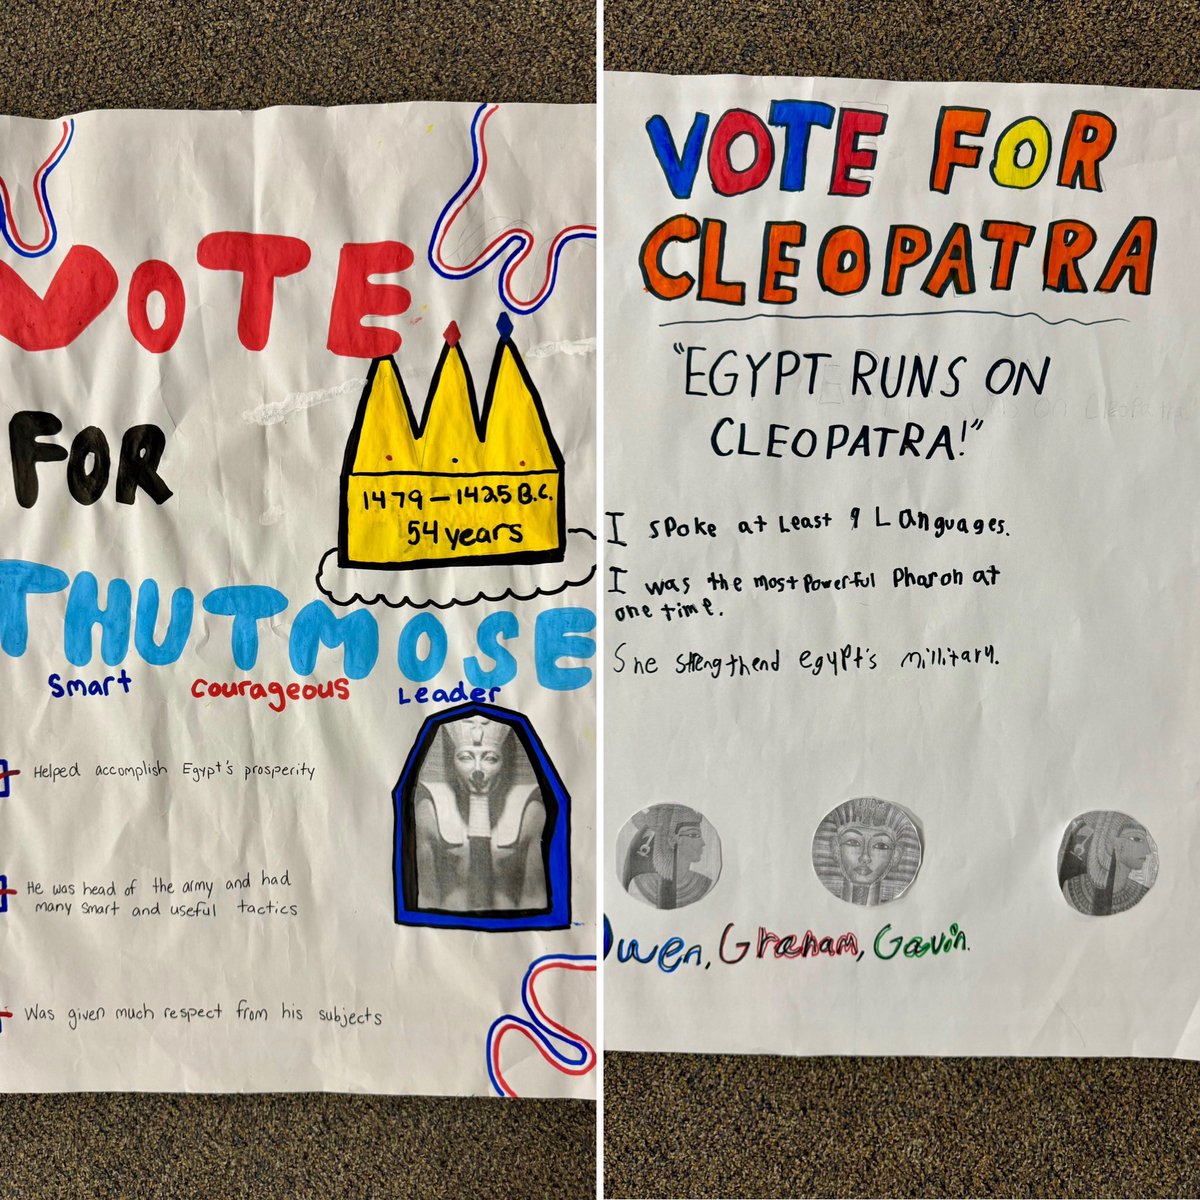 VOTE
FOR
1479-1425 B.C.
54 years
THUTMOSE
Smart Courageous Leader
Helped accomplish Egypt's prosperity
He was head of the army and had
many smart and useful tactics
Was given much respect from his subjects
VOTE FOR
CLEOPATRA
"EGYPT RUNS ON
CLEOPATRA!"
I spoke at Least 9 Languages.
I was the most Powerful Pharoh at
one time.
She strengthend egypt's millitary.
Owen, Graham, Gavin.